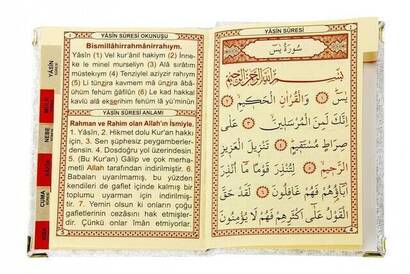 YÂSİN SÛRESİ OKUNUŞU
Bismillâhirrahmânirrahıym.
Yâsîn (1) Vel kur'ânil hakiym (2) İnne-
ke le minel murseliyn (3) Alâ sırâtım
müstekıym (4) Tenziylel aziyzir rahiym
(5) Li tünzira
ühüm fehüm ğâfilûn (6) Le kad hakkal
kavlü alâ ekserihim fehüm lâ yü'minûn
YÂSİN SÛRESİ ANLAMI
Rahman ve Rahim olan Allah'ın İsmiyle.
1. Yâsîn, 2. Hikmet dolu Kur'an hakkı
için, 3. Sen şüphesiz peygamberler-
densin. 4. Dosdoğru yol üzerindesin.
5. (Bu Kur'an) Gâlip ve çok merha-
metli Allah tarafından indirilmiştir. 6.
Babaları uyarılmamış, bu yüzden
kendileri de gaflet içinde kalmış bir
toplumu uyarman için indirilmiş-
tir. 7. Yemin olsun ki onların çoğu
gafletlerinin cezasını hak etmişler-
dir. Çünkü onlar iman etmiyorlar.
YÂSİN
NEBE
CUMA
YÂSİN SÛRESİ
سُورَةُ يٰسۤ
بِسْمِ اللّٰهِ الرَّحْمٰنِ الرَّحِيمِ
يٰسۤ ﴿١﴾ وَالْقُرْاٰنِ الْحَكِيمِ ﴿٢﴾
اِنَّكَ لَمِنَ الْمُرْسَلِينَ ﴿٣﴾ عَلٰى
صِرَاطٍ مُسْتَقِيمٍ ﴿٤﴾ تَنْزِيلَ الْعَزِيزِ
الرَّحِيمِ ﴿٥﴾ لِتُنْذِرَ قَوْمًا مَا اُنْذِرَ
اٰبَاؤُهُمْ فَهُمْ غَافِلُونَ ﴿٦﴾ لَقَدْ حَقَّ
الْقَوْلُ عَلٰى اَكْثَرِهِمْ فَهُمْ لَا يُؤْمِنُونَ